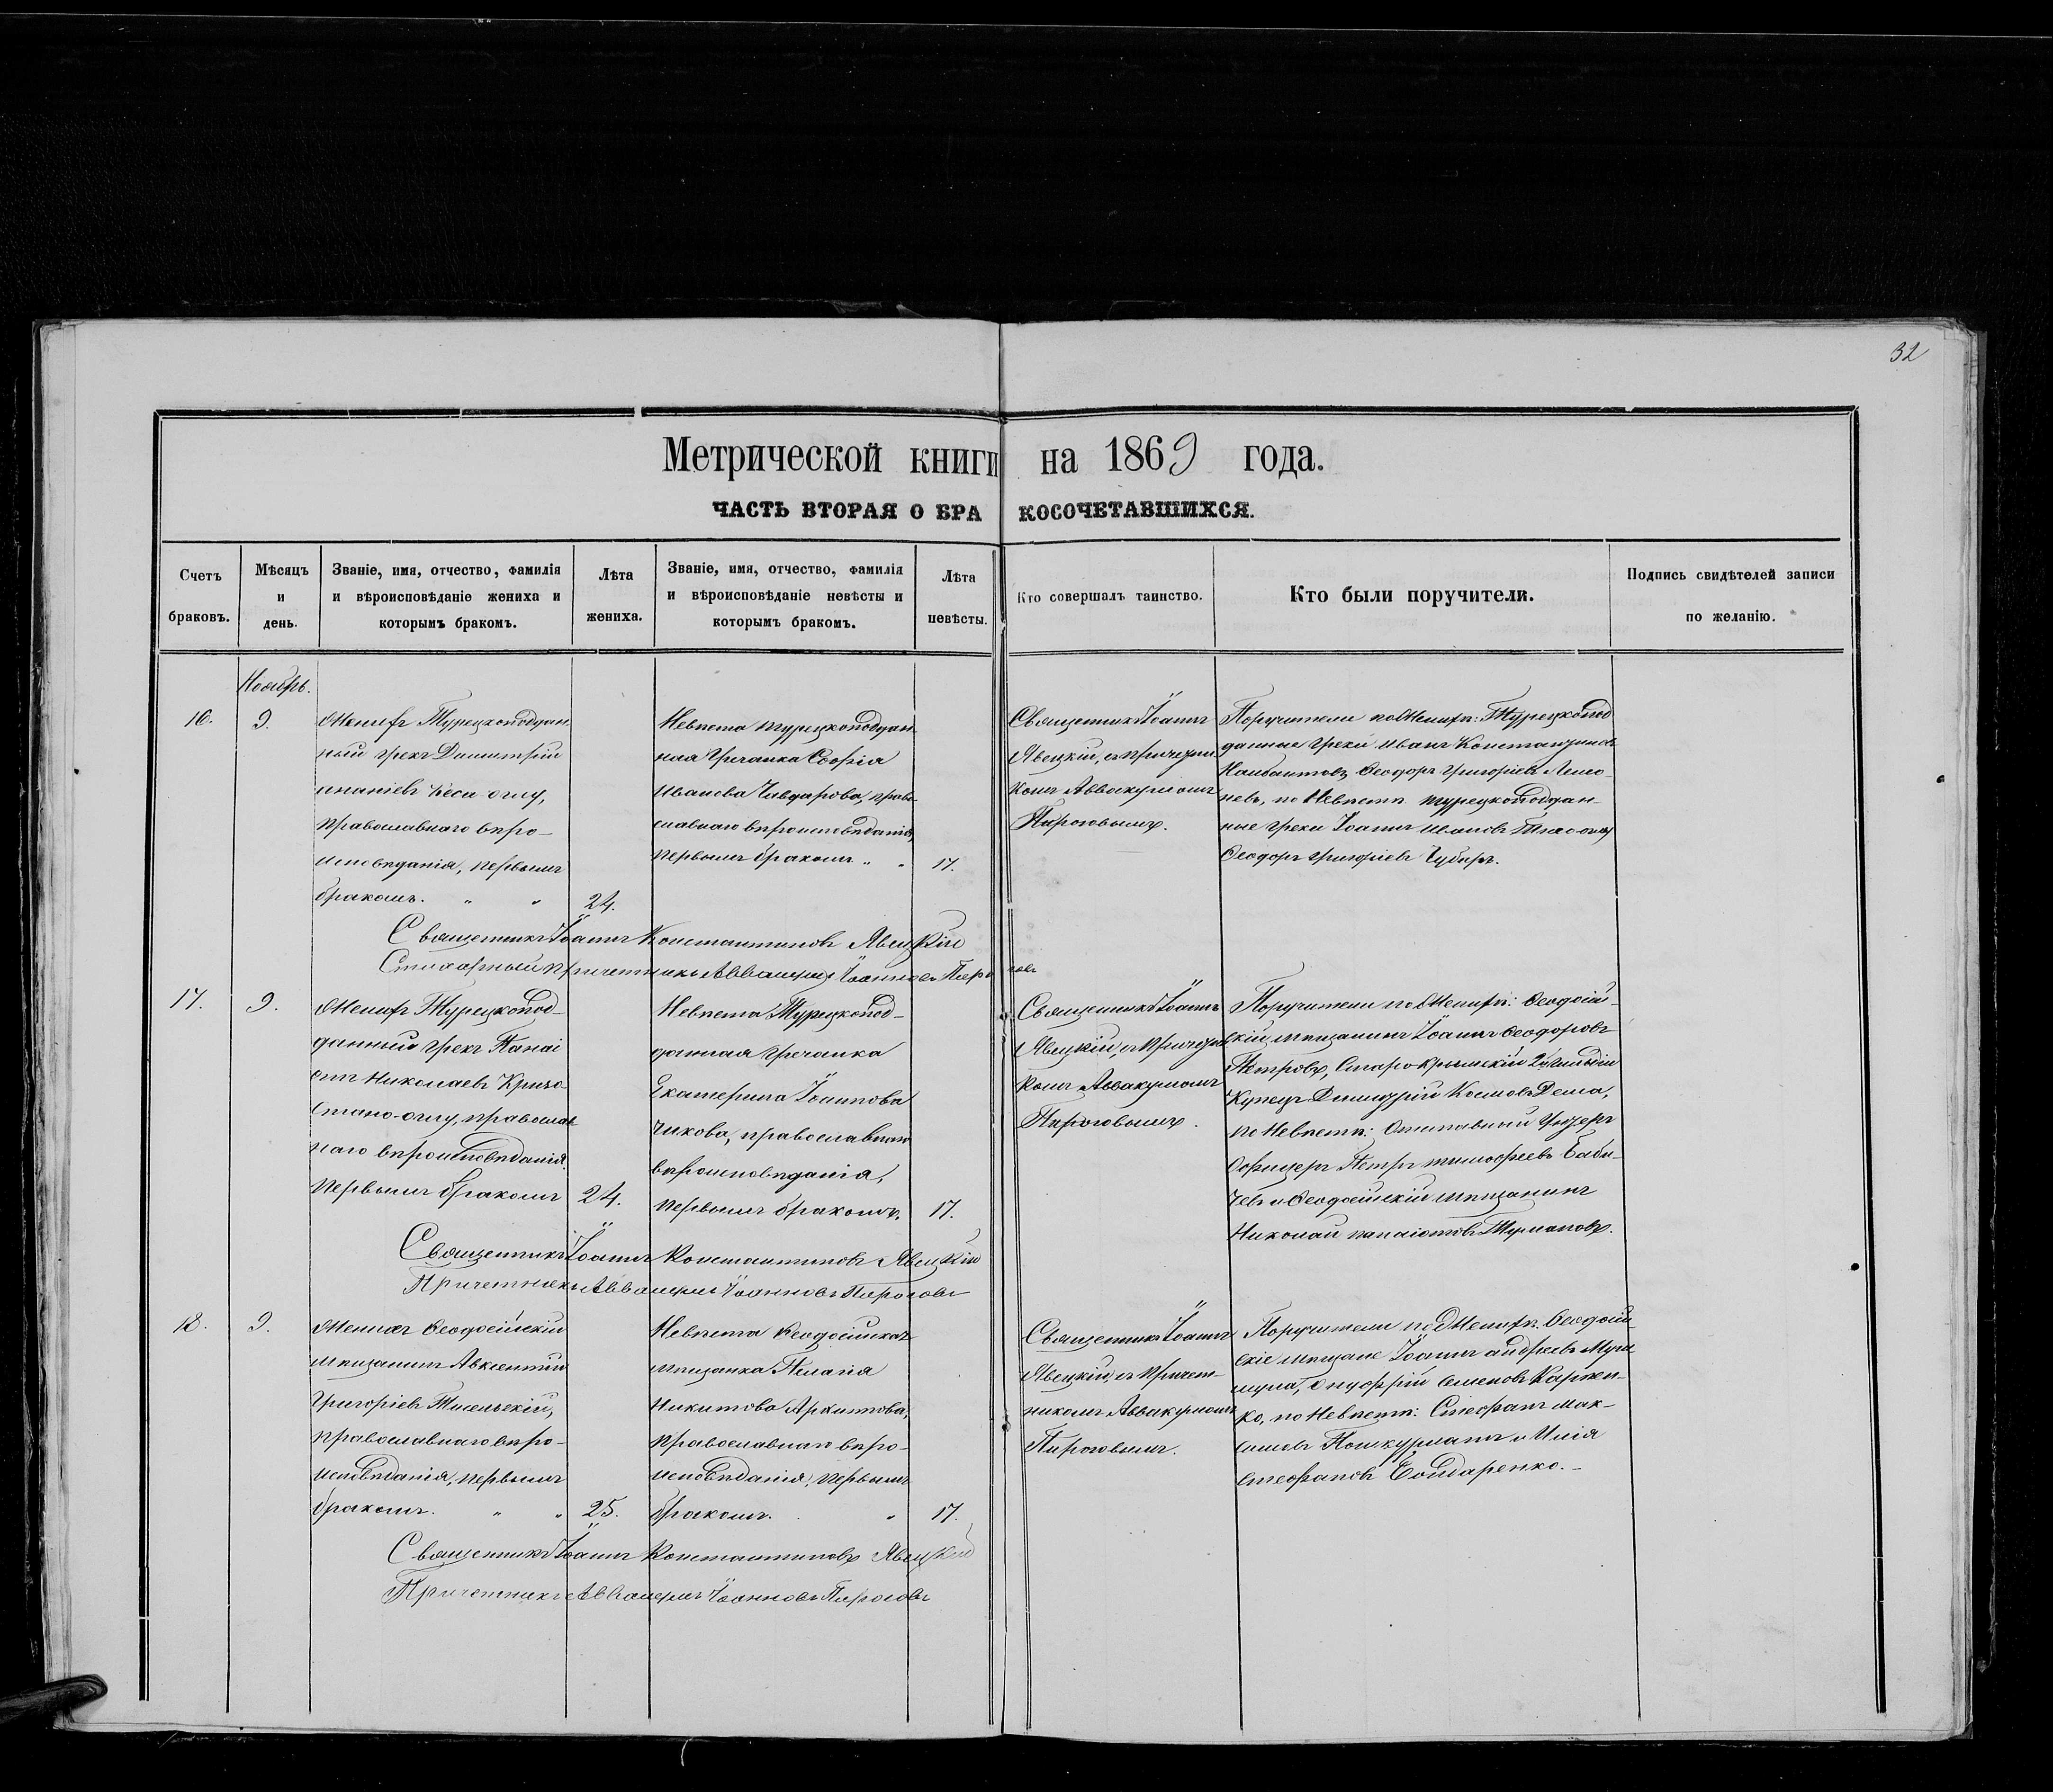 32
Метрической книги на 1869 года.
ЧАСТЬ ВТОРАЯ О БРАКОСОЧЕТАВШИХСЯ.
Счетъ браковъ.
Мѣсяцъ и день.
Званіе, имя, отчество, фамилія
и вѣроисповѣданіе жениха и
которымъ бракомъ.
Лѣта
жениха.
Званіе, имя, отчество, фамилія
и вѣроисповѣданіе невѣсты и
которымъ бракомъ.
Лѣта
невѣсты.
Кто совершалъ таинство.
Кто были поручители.
Подпись свидѣтелей записи
по желанію.
Ноябрь.
16.
9.
Женихъ Турецкоподдан
ный грекъ Димитрій
православнаго вѣро-
исповѣданія, первымъ
бракомъ. " "
24.
Невѣста турецкоподдан
ная гречанка Софія
Иванова Чавдарова, право
славнаго вѣроисповѣданія,
первымъ бракомъ " "
17.
Священникъ Іоаннъ
Явецкій, съ причетни
комъ Аввакумомъ
Пироговымъ.
Поручители по Женихѣ: Турецкопод
данные греки Иванъ Константиновъ
Ѳеодоръ Григоріевъ
по Невѣстѣ турецкоподдан-
ные греки Іоаннъ Ивановъ
Ѳеодоръ Григоріевъ Чубаръ.
Священникъ Іоаннъ Константиновъ Явецкій
Стихарный причетникъ Аввакумъ Іоанновъ Пироговъ
17.
9.
Женихъ Турецкопод-
данный грекъ Панаі
отъ Николаевъ Кризо
стано-оглу, православ
наго вѣроисповѣданія.
первымъ бракомъ
24.
Невѣста Турецкопод-
данная гречанка
Екатерина Іоаннова
Чикова, православнаго
вѣроисповѣданія,
первымъ бракомъ.
17.
Священникъ Іоаннъ
Явецкій, съ причетни
комъ Аввакумомъ
Пироговымъ.
Поручители по Женихѣ: Ѳеодосій-
скій мѣщанинъ Іоаннъ Ѳеодоровъ
Петровъ, Старо Крымскій 2й гильдіи
Купецъ Димитрій Космовъ Дема,
по Невѣстѣ: Отставной Унтеръ
Офицеръ Петръ Тимофеевъ Баби-
чевъ и Ѳеодосійскій мѣщанинъ
Николай Панаіотовъ Тумановъ.
Священникъ Іоаннъ Константиновъ Явецкій
Причетникъ Аввакумъ Іоанновъ Пироговъ
18.
9.
Женихъ Ѳеодосійскій
мѣщанинъ Авксентій
Григоріевъ
православнаго вѣро-
исповѣданія, первымъ
бракомъ. " "
25.
Невѣста Ѳеодосійская
мѣщанка Пелагія
Никитова Архипова,
православнаго вѣро-
исповѣданія, первымъ
бракомъ. "
17.
Священникъ Іоаннъ
Явецкій, съ причет-
никомъ Аввакумомъ
Пироговымъ.
Поручители по Женихѣ: Ѳеодосій-
скіе мѣщане Іоаннъ Андреевъ
Онуфрій Семеновъ Карпен-
ко, по Невѣстѣ: Стефанъ Мак-
симовъ и Илія
Стефановъ Бондаренко.-
Священникъ Іоаннъ Константиновъ Явецкій
Причетникъ Аввакумъ Іоанновъ Пироговъ